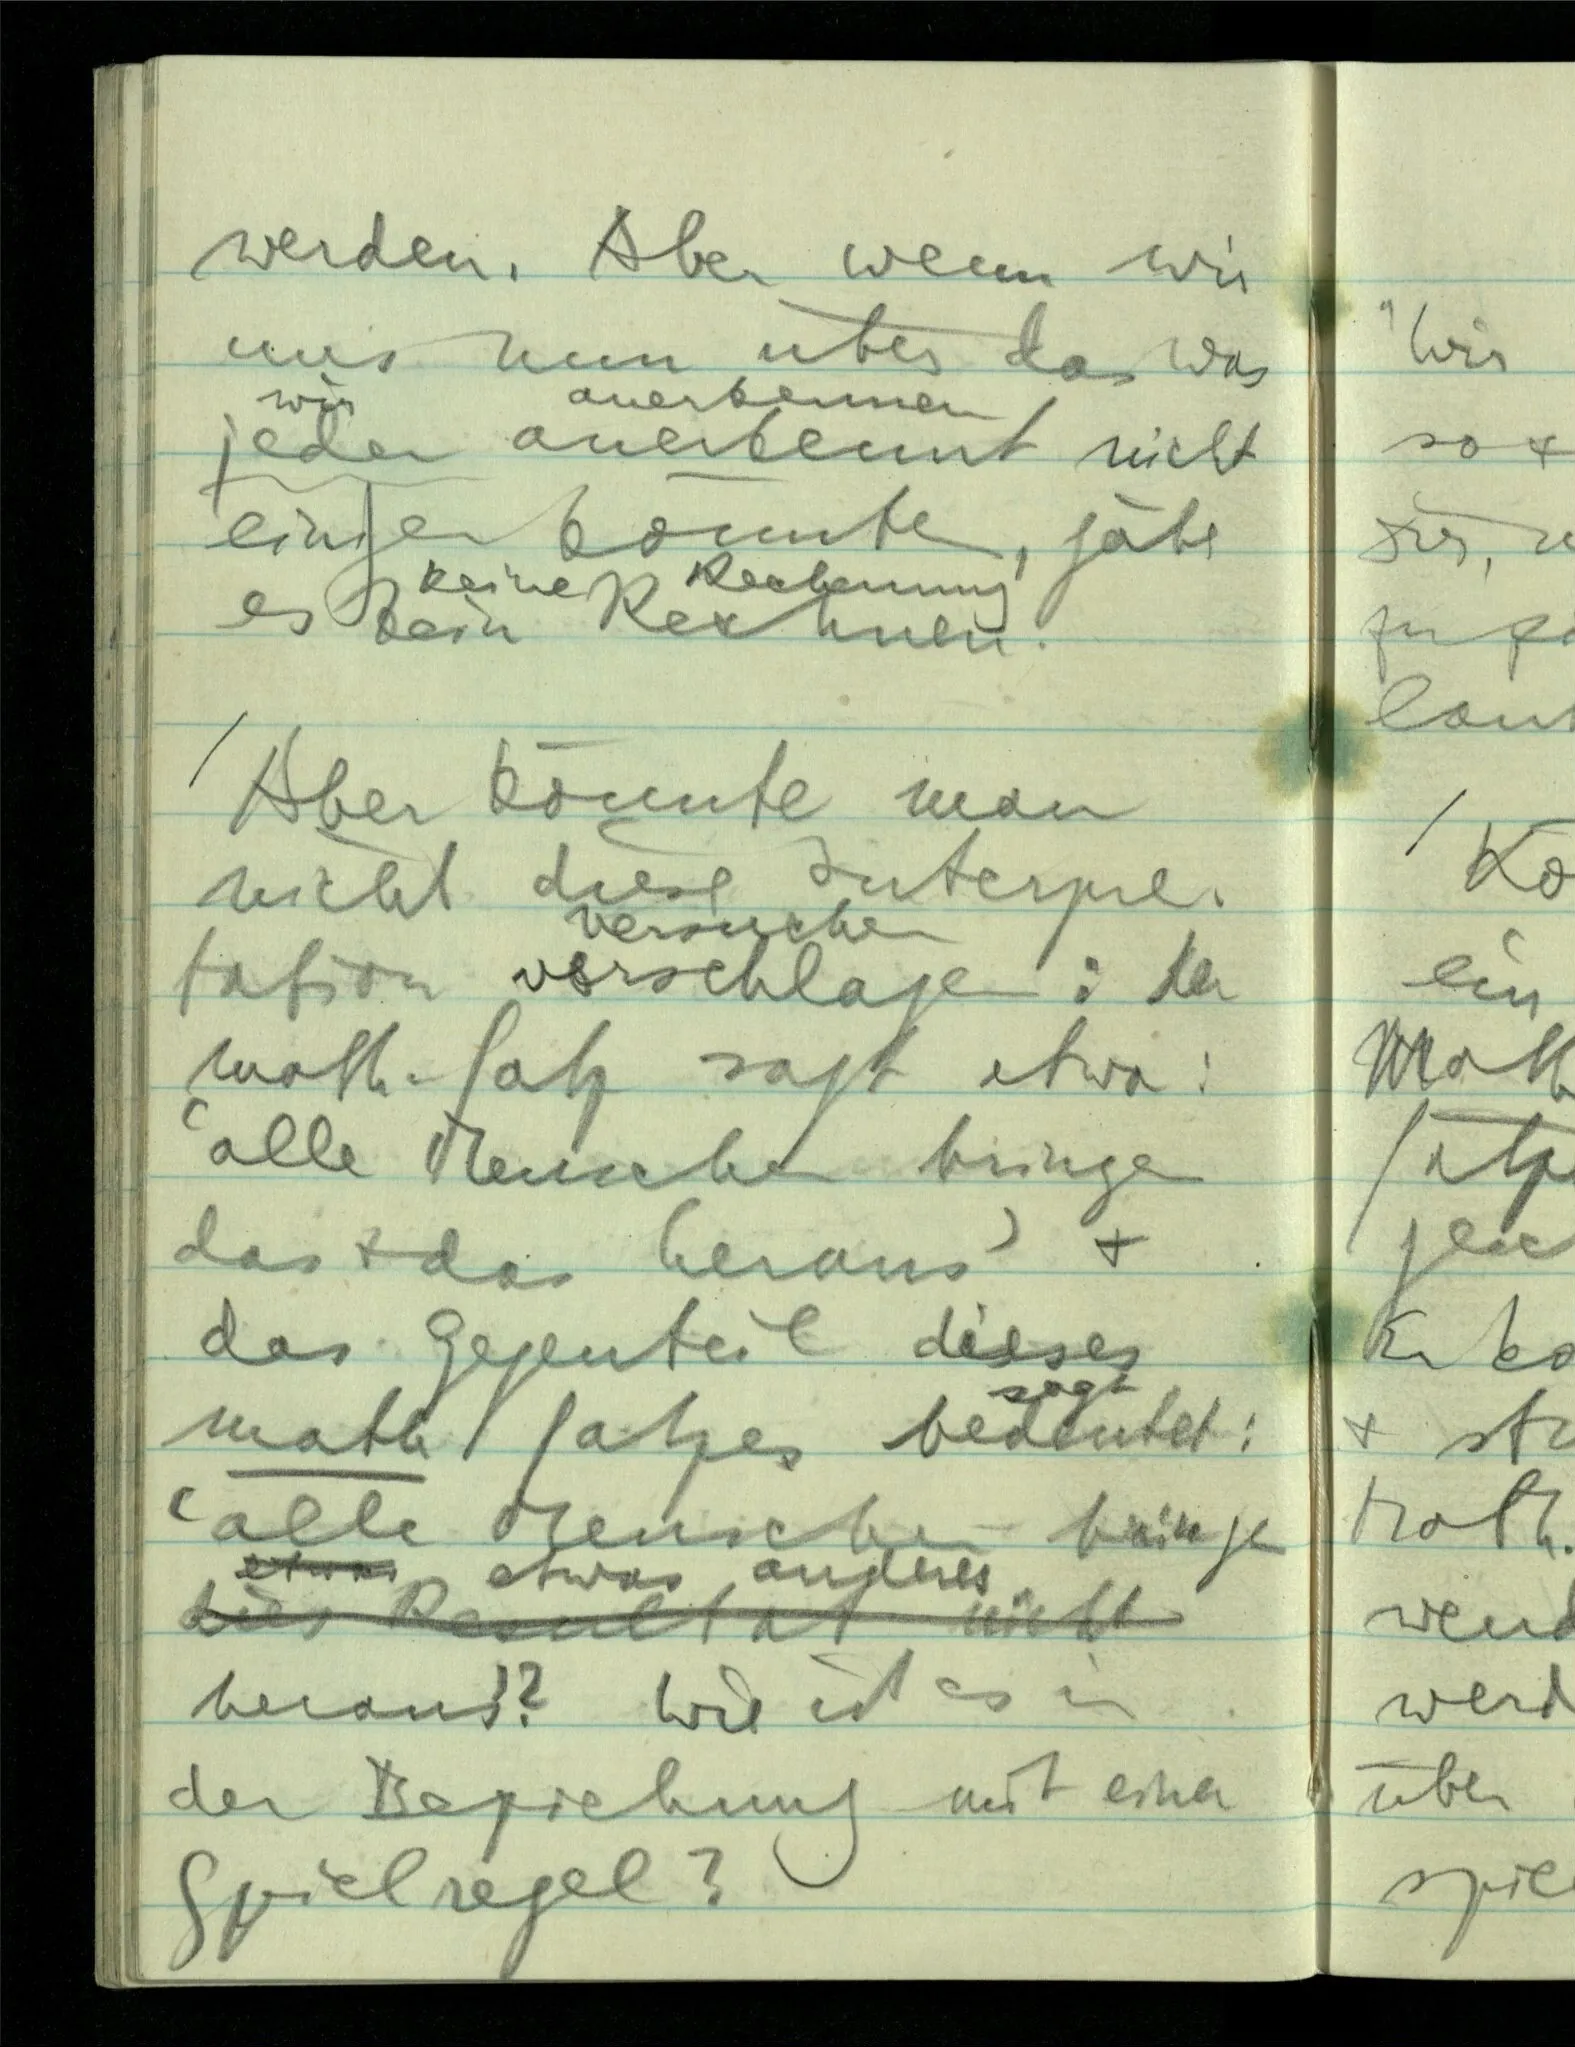 werden. Aber wenn wir
uns nun über das was
wir anerkennen
jeder anerkennt nicht
einigen könnten, gäbe
keine Rechnung
es kein Rechnen.
/ Aber könnte man
nicht diese Interpre-
versuchen
tation vorschlagen: der
math. Satz sagt etwa:
'alle Menschen bringen
das + das heraus' +
das Gegenteil dieses
sagt
math Satzes bedeutet:
'alle Menschen bringen
etwas etwas anderes
dies Resultat nicht
heraus'? Wie ist es in
der Beziehung mit einer
Spielregel?
"Wir
so +
zu
/ Kö
ein
Math
+
Math.
wend
werd
über
spiel